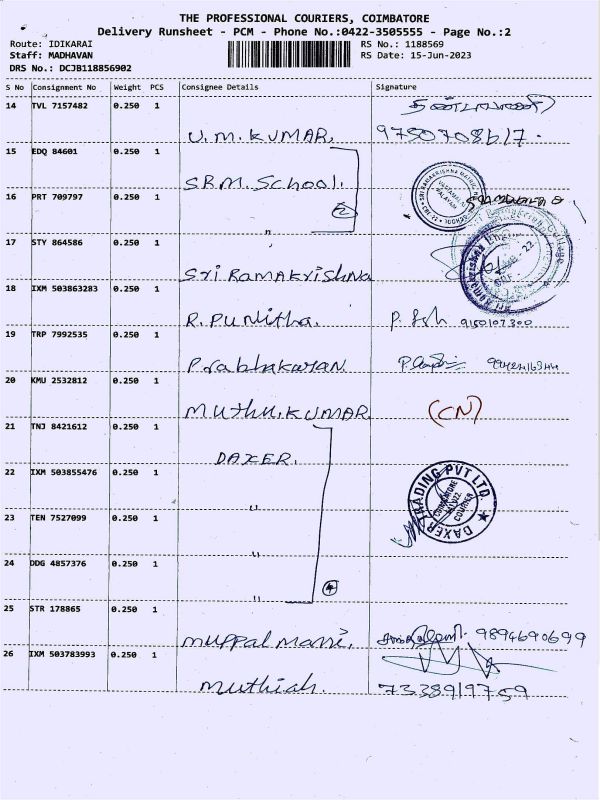 THE PROFESSIONAL COURIERS, COIMBATORE
Delivery Runsheet - PCM - Phone No.:0422-3505555 - Page No.:2
Route: IDIKARAI RS No.: 1188569
Staff: MADHAVAN RS Date: 15-Jun-2023
DRS No.: DCJB118856902
S No Consignment No Weight PCS Consignee Details Signature
14 TVL 7157482 0.250 1
U.M.KUMAR, 9750708617.
15 EDQ 84601 0.250 1
S.R.M. School.
16 PRT 709797 0.250 1
2
"
17 STY 864586 0.250 1
Sri Ramakrishna
18 IXM 503863283 0.250 1
R. Punitha. 9150107300
19 TRP 7992535 0.250 1
Prabhakaran
20 KMU 2532812 0.250 1
Muthu.KUMAR (CN)
21 TNJ 8421612 0.250 1
DAXER.
22 IXM 503855476 0.250 1
"
DAXER TRADING PVT LTD.
COIMBATORE
COURIER
23 TEN 7527099 0.250 1
"
24 DDG 4857376 0.250 1
" 4
25 STR 178865 0.250 1
Muppal Mani, 9894690699
26 IXM 503783993 0.250 1
Muthiah. 7338919759